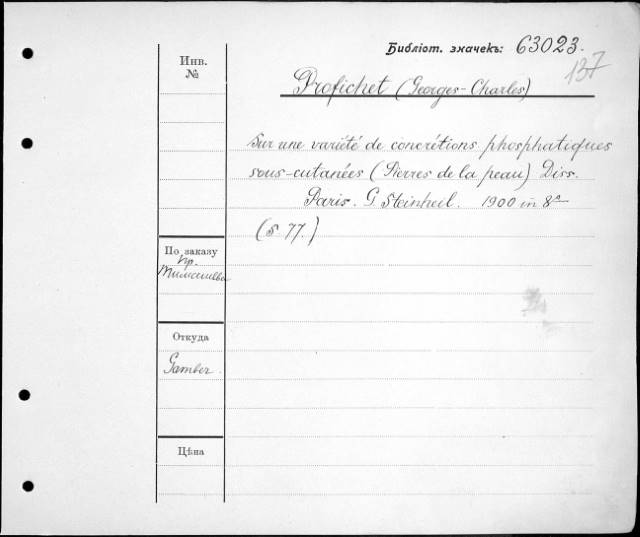 Библіот. значекъ: 63023.
137
Инв. №
Profichet (Georges-Charles)
Sur une variété de concrétions phosphatiques
sous-cutanées (Pierres de la peau) Diss.
Paris. G. Steinheil. 1900 in 8°
(S 77.)
По заказу
пр.
Откуда
Gamber.
Цѣна